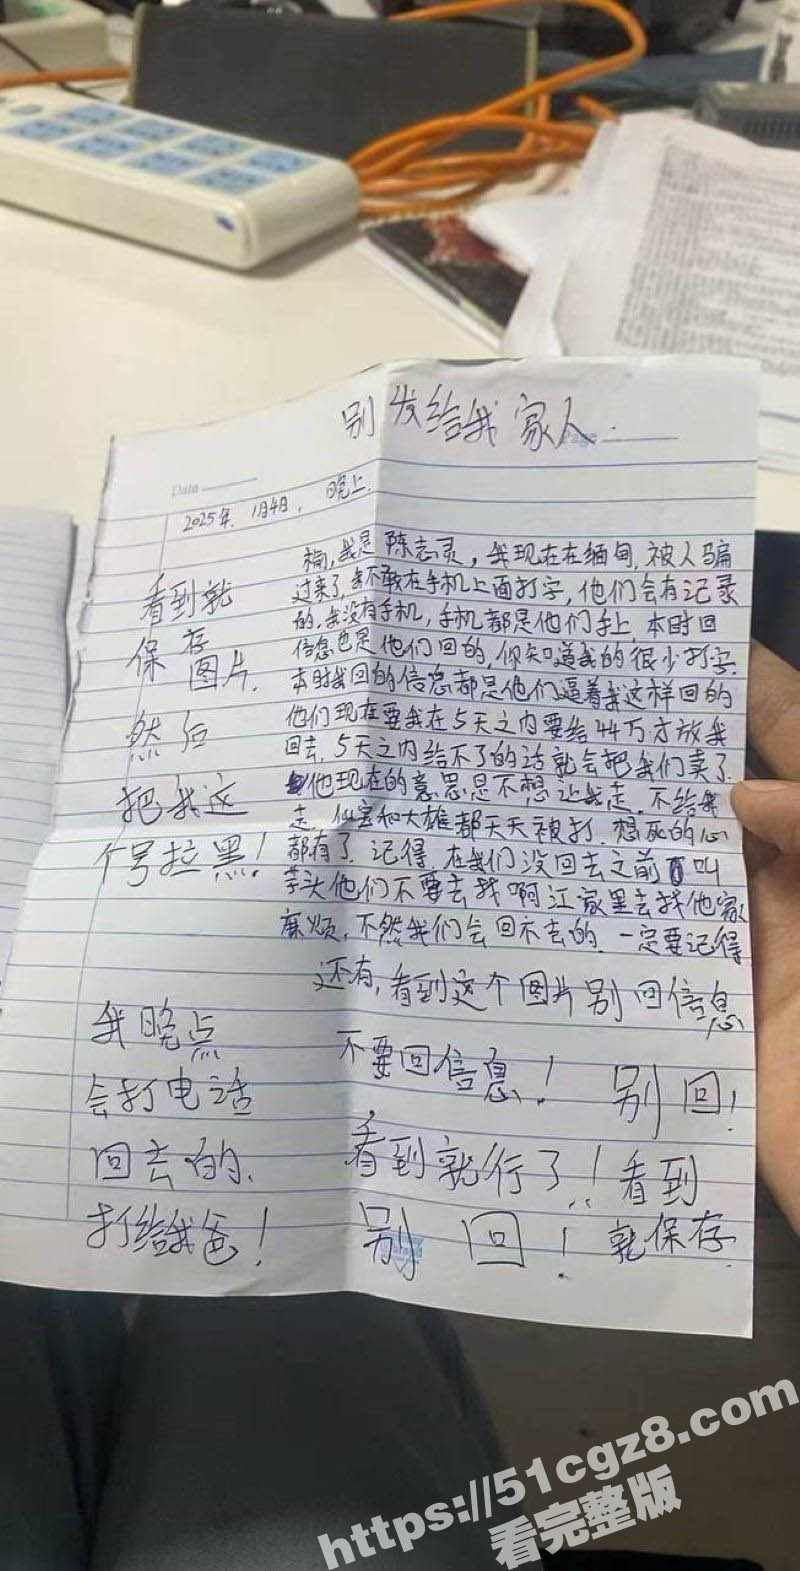 别发给我家人.
Page
Date
2025年. 1月4日, 晚上.
楠,我是陈志灵,我现在在缅甸,被人骗
过来了,我不敢在手机上面打字,他们会有记录
的,我没有手机,手机都是他们手上,本时回
信息也是他们回的,你知道我的很少打字.
本时我回的信息都是他们逼着我这样回的
他们现在要我在5天之内要给44万才放我
回去,5天之内给不了的话就会把我们卖了.
他现在的意思是不想让我走,不给我
走,仙宝和大雄都天天被打,想死的心
都有了.记得,在我们没回去之前叫
芋头他们不要去找啊江家里去找他家
麻烦,不然我们会回不去的.一定要记得
还有,看到这个图片别回信息
不要回信息!别回!
看到就行了!看到
别回!就保存.
看到就
保存
图片.
然后
把我这
个号拉黑!
我晚点
会打电话
回去的.
打给我爸!
https://51cgz8.com
看完整版